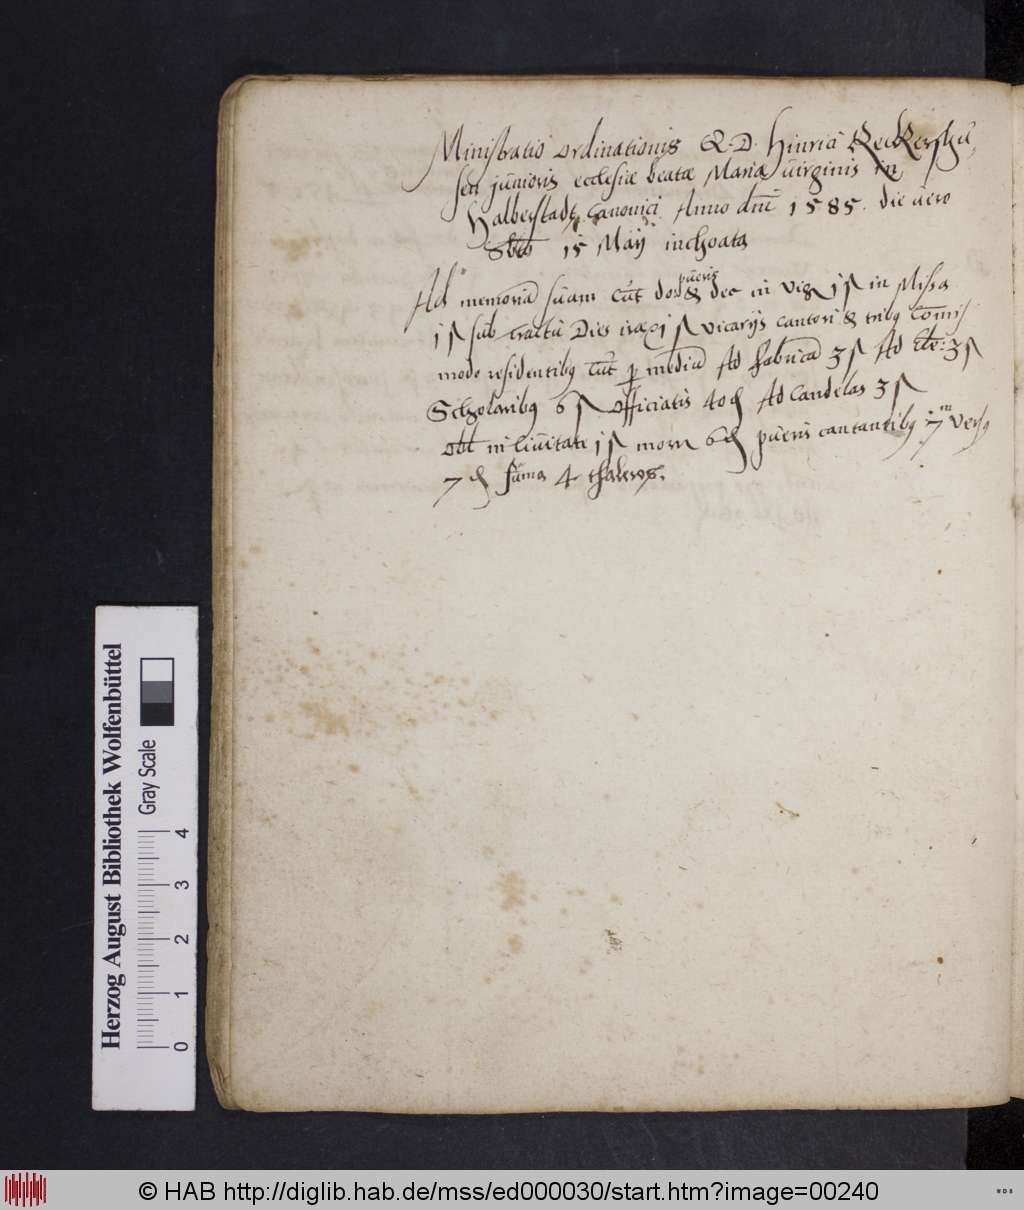 Ministratio ordinationis R. D. Hinrici ReckKershu,
sen junioris ecclesiæ beatæ Mariæ virginis in
Halberstadt Canonici Anno dnī 1585. die vero
15 Maij inchoata
Ad memoriā suam Cūt pueris
& dec in vig 1 ß in Missa
1 ß sub tractu Dies iræ 1 ß vicarijs cantori & tribꝰ Comis
modo residentibꝰ Cūt mediū Ad fabricā 3 ß Ad 3 ß
Scholaribꝰ 6 ß officiatis 40 ₰ Ad Candelas 3 ß
in Civitate 1 ß 6 ₰ pueris cantantibꝰ versꝰ
7 ₰ Suma 4 thaleros.
Herzog August Bibliothek Wolfenbüttel
Gray Scale
0 1 2 3 4
© HAB http://diglib.hab.de/mss/ed000030/start.htm?image=00240